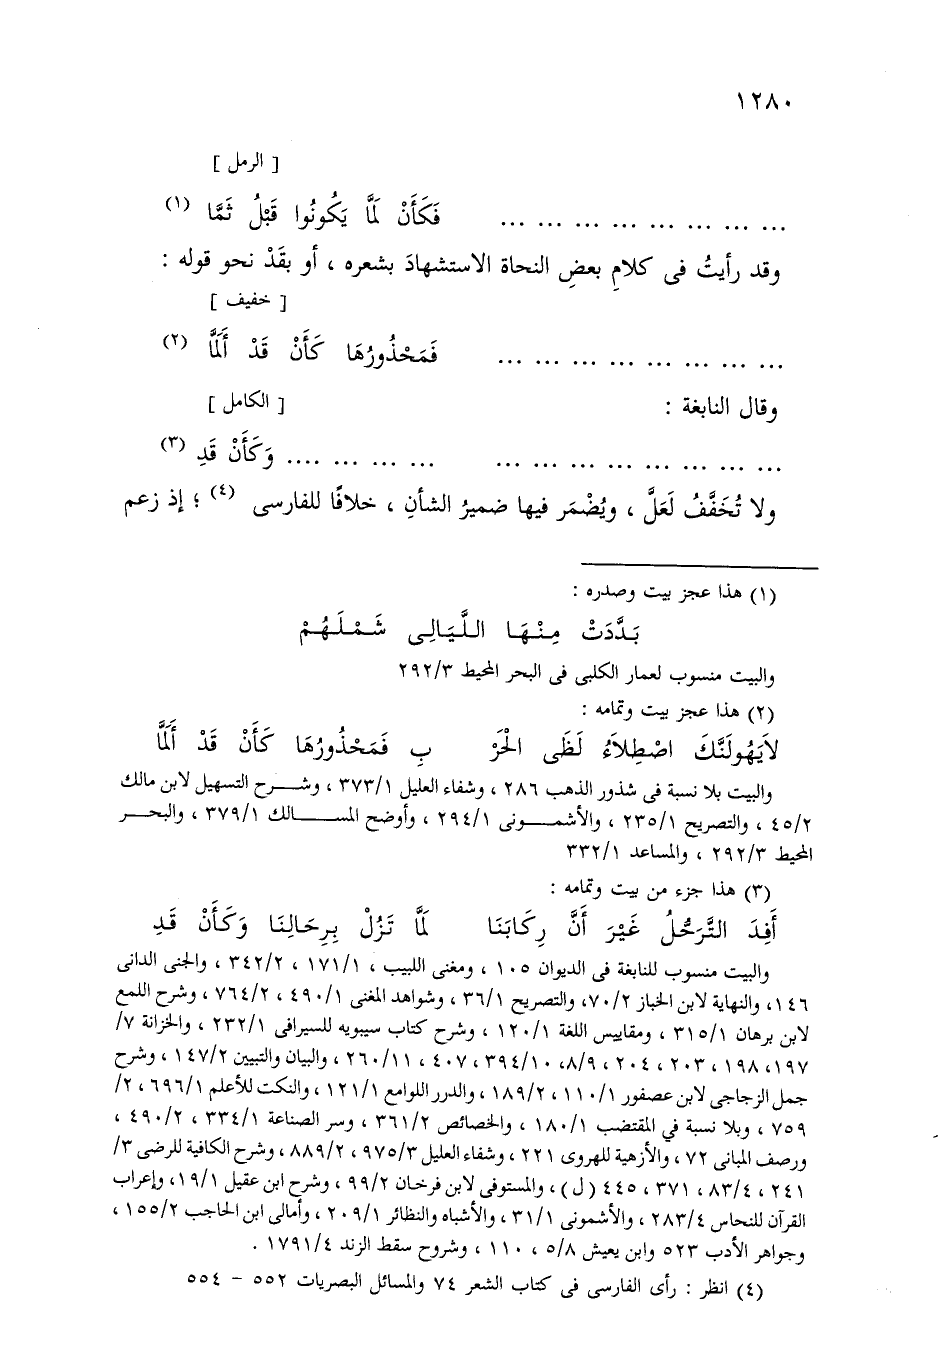 ١٢٨٠
[ الرمل ]
... ... ... ... ... ... ... ... فَكَأَنْ لَمَّا يَكُونُوا قَبْلُ ثَمَّا (١)
وقد رأيتُ فى كلامِ بعضِ النحاة الاستشهادَ بشعره ، أو بقَدْ نحو قوله :
[ خفيف ]
... ... ... ... ... ... ... ... فَمَحْذُورُهَا كَأَنْ قَدْ أَلَمَّا (٢)
وقال النابغة : [ الكامل ]
... ... ... ... ... ... ... ... ... ... ... .... وَكَأَنْ قَدِ (٣)
ولا تُخَفَّفُ لَعَلَّ ، ويُضْمَر فيها ضميرُ الشأنِ ، خلافًا للفارسى (٤) ؛ إذ زعم
(١) هذا عجز بيت وصدره :
بَدَّدَتْ مِنْهَا اللَّيَالِى شَمْلَهُمْ
والبيت منسوب لعمار الكلبى فى البحر المحيط ٢٩٢/٣
(٢) هذا عجز بيت وتمامه :
لاَيَهُولَنَّكَ اصْطِلاَءُ لَظَى الْحَرْ بِ فَمَحْذُورُهَا كَأَنْ قَدْ أَلَمَّا
والبيت بلا نسبة فى شذور الذهب ٢٨٦ ، وشفاء العليل ٣٧٣/١ ، وشرح التسهيل لابن مالك
٤٥/٢ ، والتصريح ٢٣٥/١ ، والأشمونى ٢٩٤/١ ، وأوضح المسالك ٣٧٩/١ ، والبحر
المحيط ٢٩٢/٣ ، والمساعد ٣٣٢/١
(٣) هذا جزء من بيت وتمامه :
أَفِدَ التَّرَحُّلُ غَيْرَ أَنَّ رِكَابَنَا لَمَّا تَزُلْ بِرِحَالِنَا وَكَأَنْ قَدِ
والبيت منسوب للنابغة فى الديوان ١٠٥ ، ومغنى اللبيب ، ١٧١/١ ، ٣٤٢/٢ ، والجنى الدانى
١٤٦، والنهاية لابن الخباز ٧٠/٢، والتصريح ٣٦/١ ، وشواهد المغنى ٤٩٠/١ ، ٧٦٤/٢ ، وشرح اللمع
لابن برهان ٣١٥/١ ، ومقاييس اللغة ١٢٠/١ ، وشرح كتاب سيبويه للسيرافى ٢٣٢/١ ، والخزانة ٧/
١٩٧، ١٩٨ ، ٢٠٣ ، ٢٠٤ ، ٨/٩، ٣٩٤/١٠ ، ٤٠٧ ، ٢٦٠/١١ ، والبيان والتبيين ١٤٧/٢ ، وشرح
جمل الزجاجى لابن عصفور ١١٠/١ ، ١٨٩/٢ ، والدرر اللوامع ١٢١/١ ، والنكت للأعلم ٦٩٦/١ ، ٢/
٧٥٩ ، وبلا نسبة في المقتضب ١٨٠/١ ، والخصائص ٣٦١/٢ ، وسر الصناعة ٣٣٤/١ ، ٤٩٠/٢ ،
ورصف المبانى ٧٢ ، والأزهية للهروى ٢٢١ ، وشفاء العليل ٩٧٥/٣ ، ٨٨٩/٢ ، وشرح الكافية للرضى ٣/
٢٤١ ، ٨٣/٤ ، ٣٧١ ، ٤٤٥ (ل) ، والمستوفى لابن فرخان ٩٩/٢ ، وشرح ابن عقيل ١٩/١، وإعراب
القرآن للنحاس ٢٨٣/٤ ، والأشمونى ٣١/١ ، والأشباه والنظائر ٢٠٩/١ ، وأمالى ابن الحاجب ١٥٥/٢ ،
وجواهر الأدب ٥٢٣ وابن يعيش ٥/٨ ، ١١٠ ، وشروح سقط الزند ١٧٩١/٤ .
(٤) انظر : رأى الفارسى فى كتاب الشعر ٧٤ والمسائل البصريات ٥٥٢ - ٥٥٤